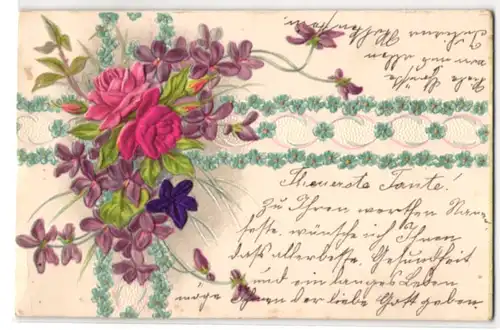 Theuerste Tante!
Zu Ihren werthen Nam
feste wünsche ich Ihnen
dass allerbeste Gesundheit
und ein langes Leben
möge Ihnen der liebe Gott geben.
Viele Grüsse
von uns allen